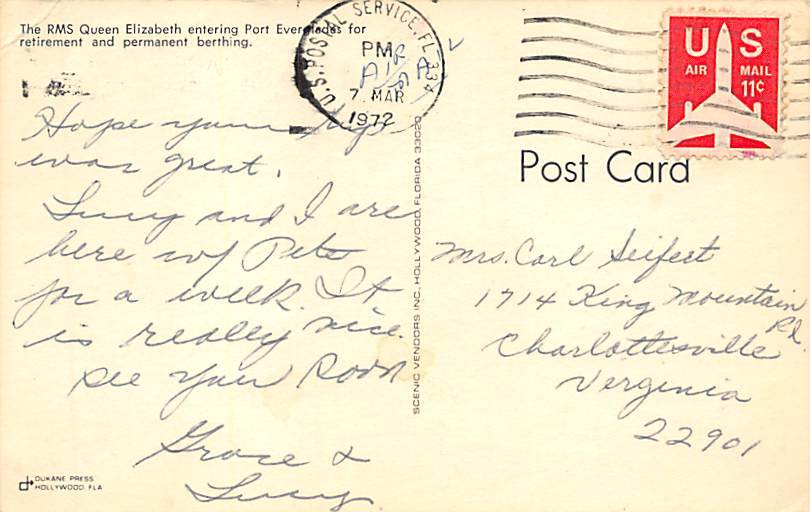 The RMS Queen Elizabeth entering Port Everglades for
retirement and permanent berthing.
U.S. POSTAL SERVICE, FL 334
PM
AIR
7 MAR
1972
US
AIR MAIL
11¢
Post Card
Hope your trip
was great.
Lucy and I are
here w/ Pete
for a week. It
is really nice.
See you soon
Grace &
Lucy
Mrs. Carl Seifert
1714 King Mountain
Rd.
Charlottesville
Verginia
22901
SCENIC VENDORS INC., HOLLYWOOD, FLORIDA 33020
DUKANE PRESS
HOLLYWOOD, FLA